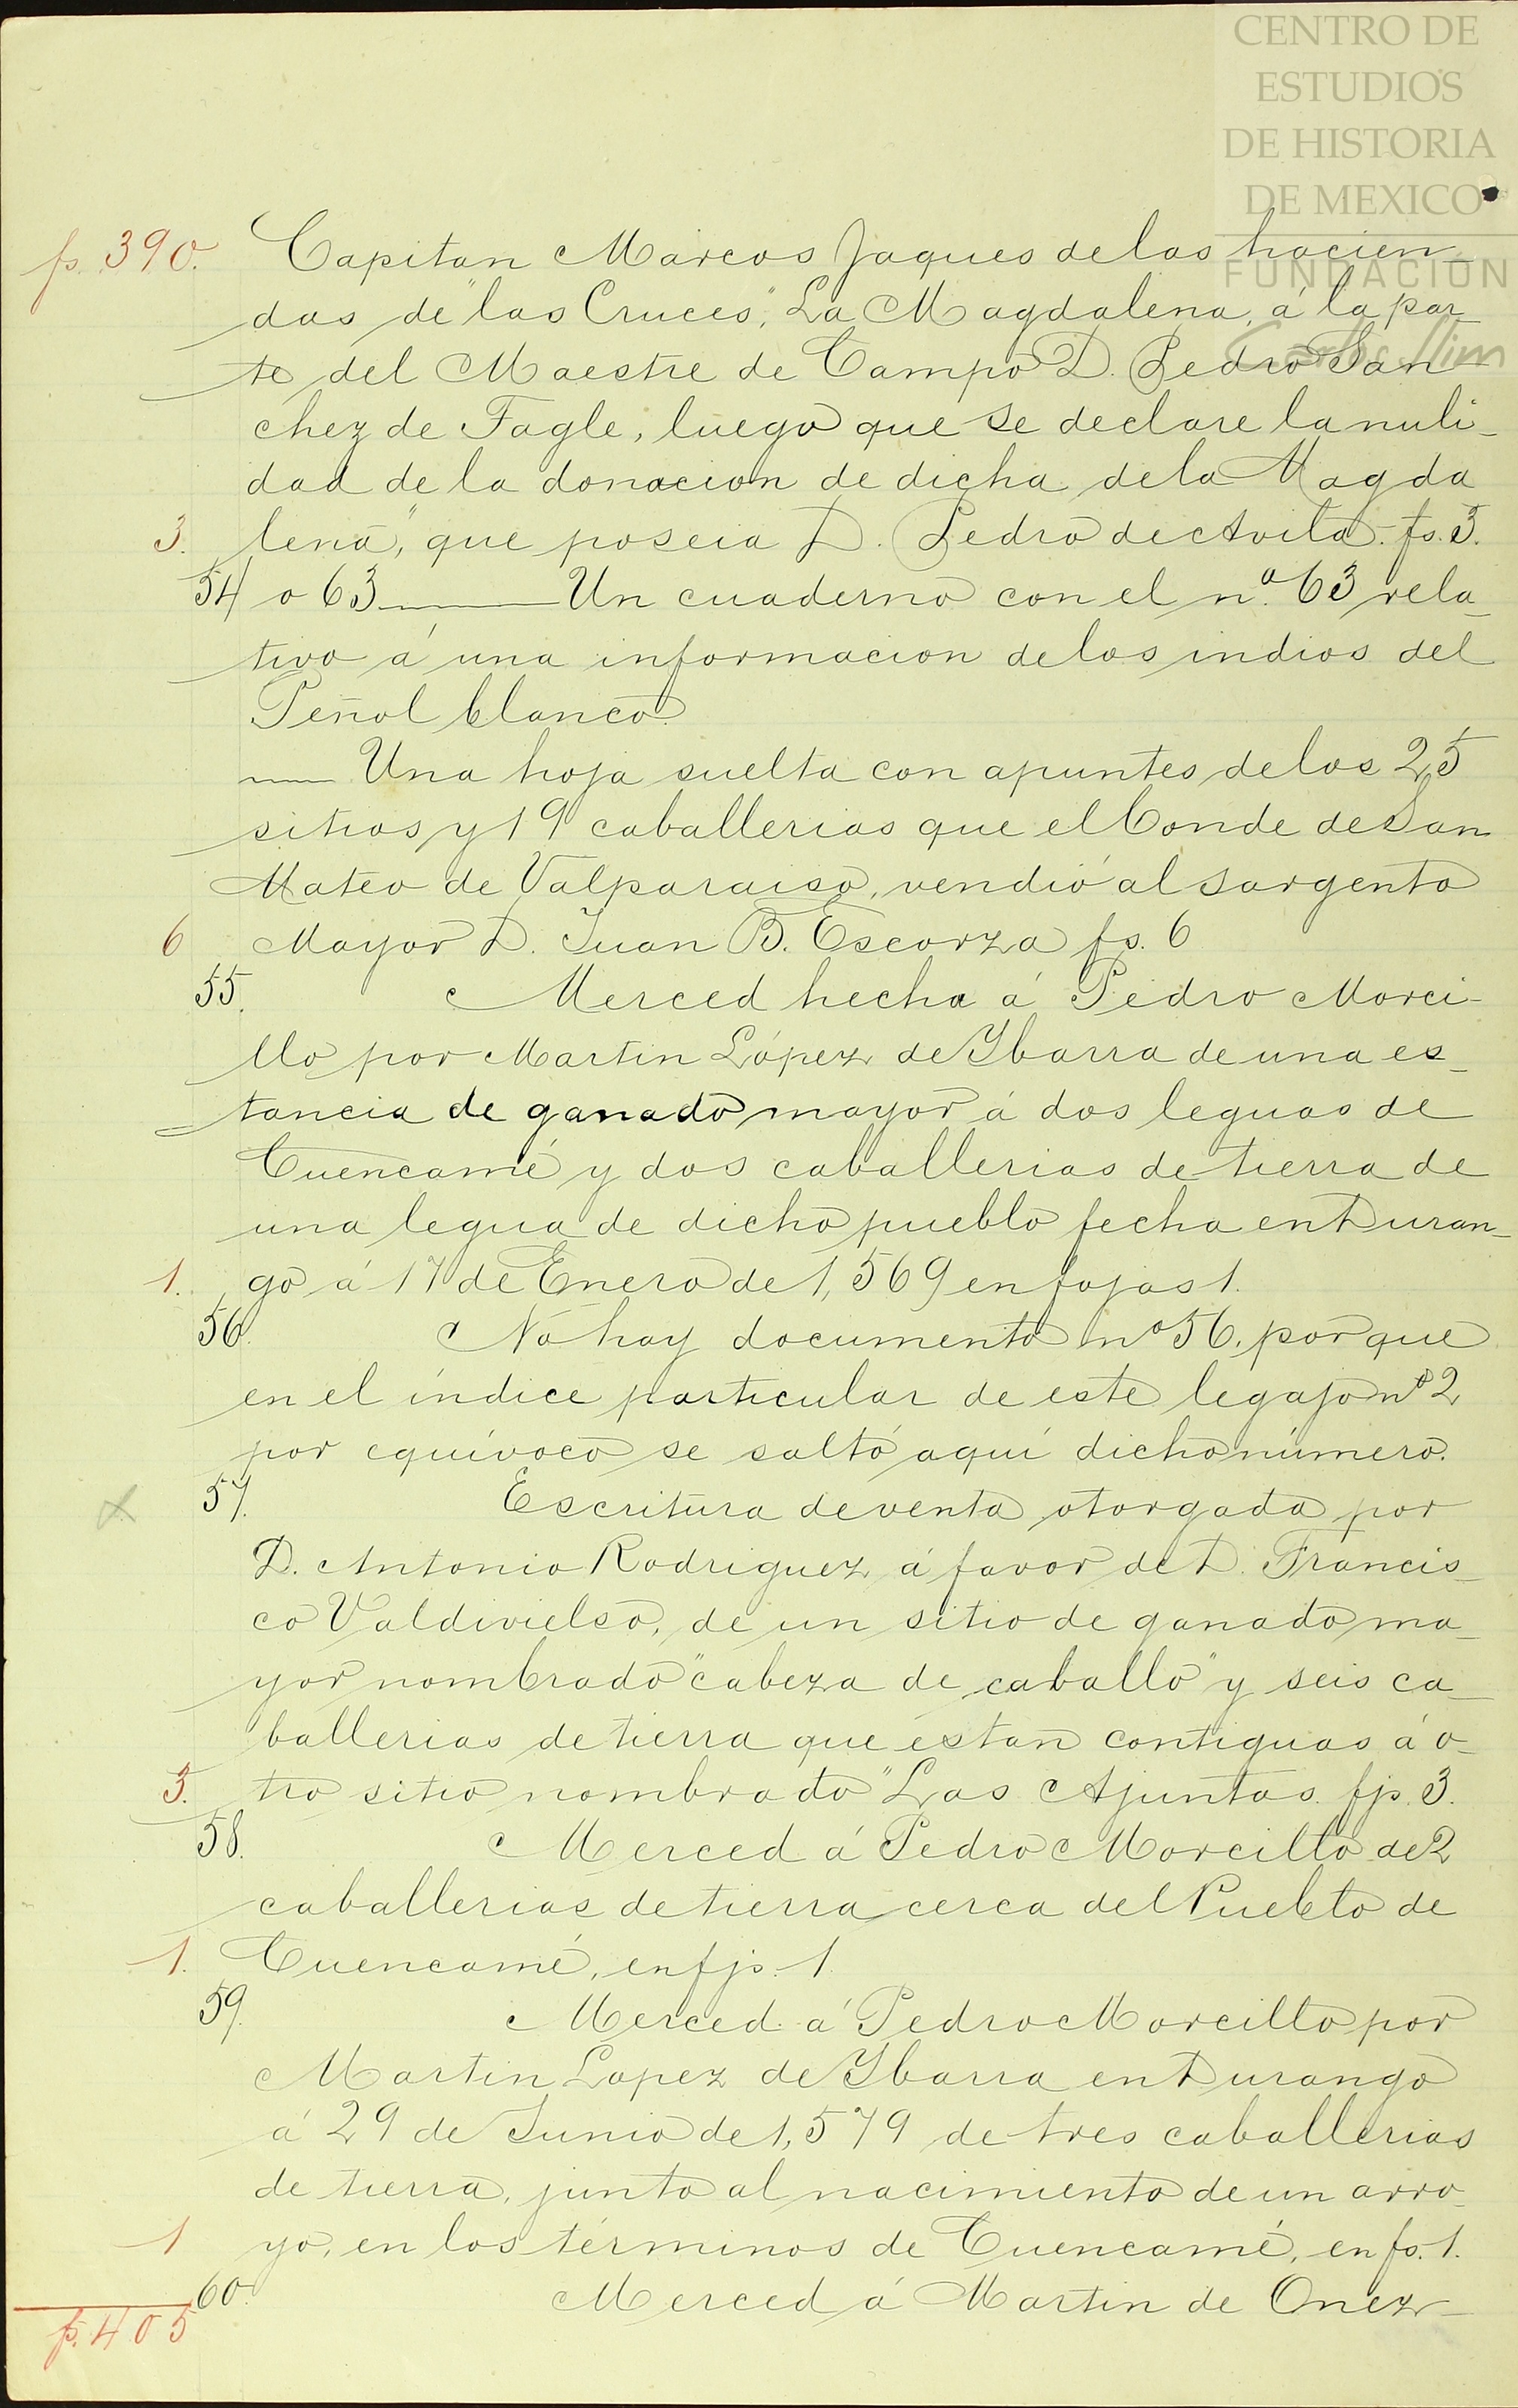 CENTRO DE
ESTUDIOS
DE HISTORIA
DE MEXICO
FUNDACIÓN
Carlos Slim
fs. 390. Capitan Marcos Jaques de las hacien-
das de "las Cruces", La Magdalena, á la par
te del Maestre de Campo D. Pedro San
chez de Tagle, luego que se declare la nuli-
dad de la donacion de dicha de la Magda
3. lena", que poseia D. Pedro de Avila. fs. 3.
54 o 63 Un cuaderno con el n.º 63 rela-
tivo á una informacion de los indios del
Peñol blanco.
Una hoja suelta con apuntes de los 25
sitios y 19 caballerias que el Conde de San
Mateo de Valparaiso, vendió al sargento
6 Mayor D. Juan B. Escorza fs. 6
55. Merced hecha á Pedro Morci-
llo por Martin López de Ybarra de una es-
tancia de ganado mayor á dos leguas de
Cuencamé y dos caballerias de tierra de
una legua de dicho pueblo fecha en Duran-
1. go á 17 de Enero de 1,569 en fojas 1.
56. No hay documento nº 56. por que
en el índice particular de este legajo nº 2
por equívoco se saltó aquí dicho número.
57. Escritura de venta otorgada por
D. Antonio Rodriguez á favor de D. Francis-
co Valdivielso, de un sitio de ganado ma-
yor nombrado "cabeza de caballo" y seis ca-
ballerias de tierra que están contiguas á o-
3. tro sitio nombrado "Las Ajuntas. fjs. 3.
58. Merced á Pedro Morcillo de 2
caballerias de tierra cerca del Pueblo de
1. Cuencamé, en fjs. 1.
59. Merced á Pedro Morcillo por
Martin Lopez de Ybarra en Durango
á 29 de Junio de 1,579 de tres caballerias
de tierra, junto al nacimiento de un arro-
1 yo, en los términos de Cuencamé, en fs. 1.
60. Merced á Martin de Onez-
fs. 405